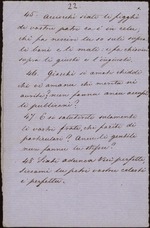 22
45. Acciocchè siate li figghi
di vostru patri ca è 'n celu,
chi fa nasciri lu so suli supra
li boni e li mali e fa chioviri
supra li giusti e l'ingiusti.
46. Giacchì si amati chiddi
chi vi amanu chi
nun fannu autri accussì
li pubblicani?
47. E si salutiriti sulamenti
li vostri frati, chi faciti di
particulari? Nun li gentili
nun fannu lu stissu?
48. Siati adunca vui perfetti,
siccomi lu patri vostru celesti
è perfettu.